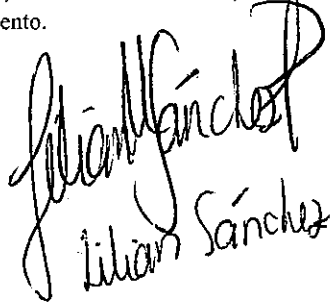 ento.
Lilian Sánchez
Lilian Sánchez